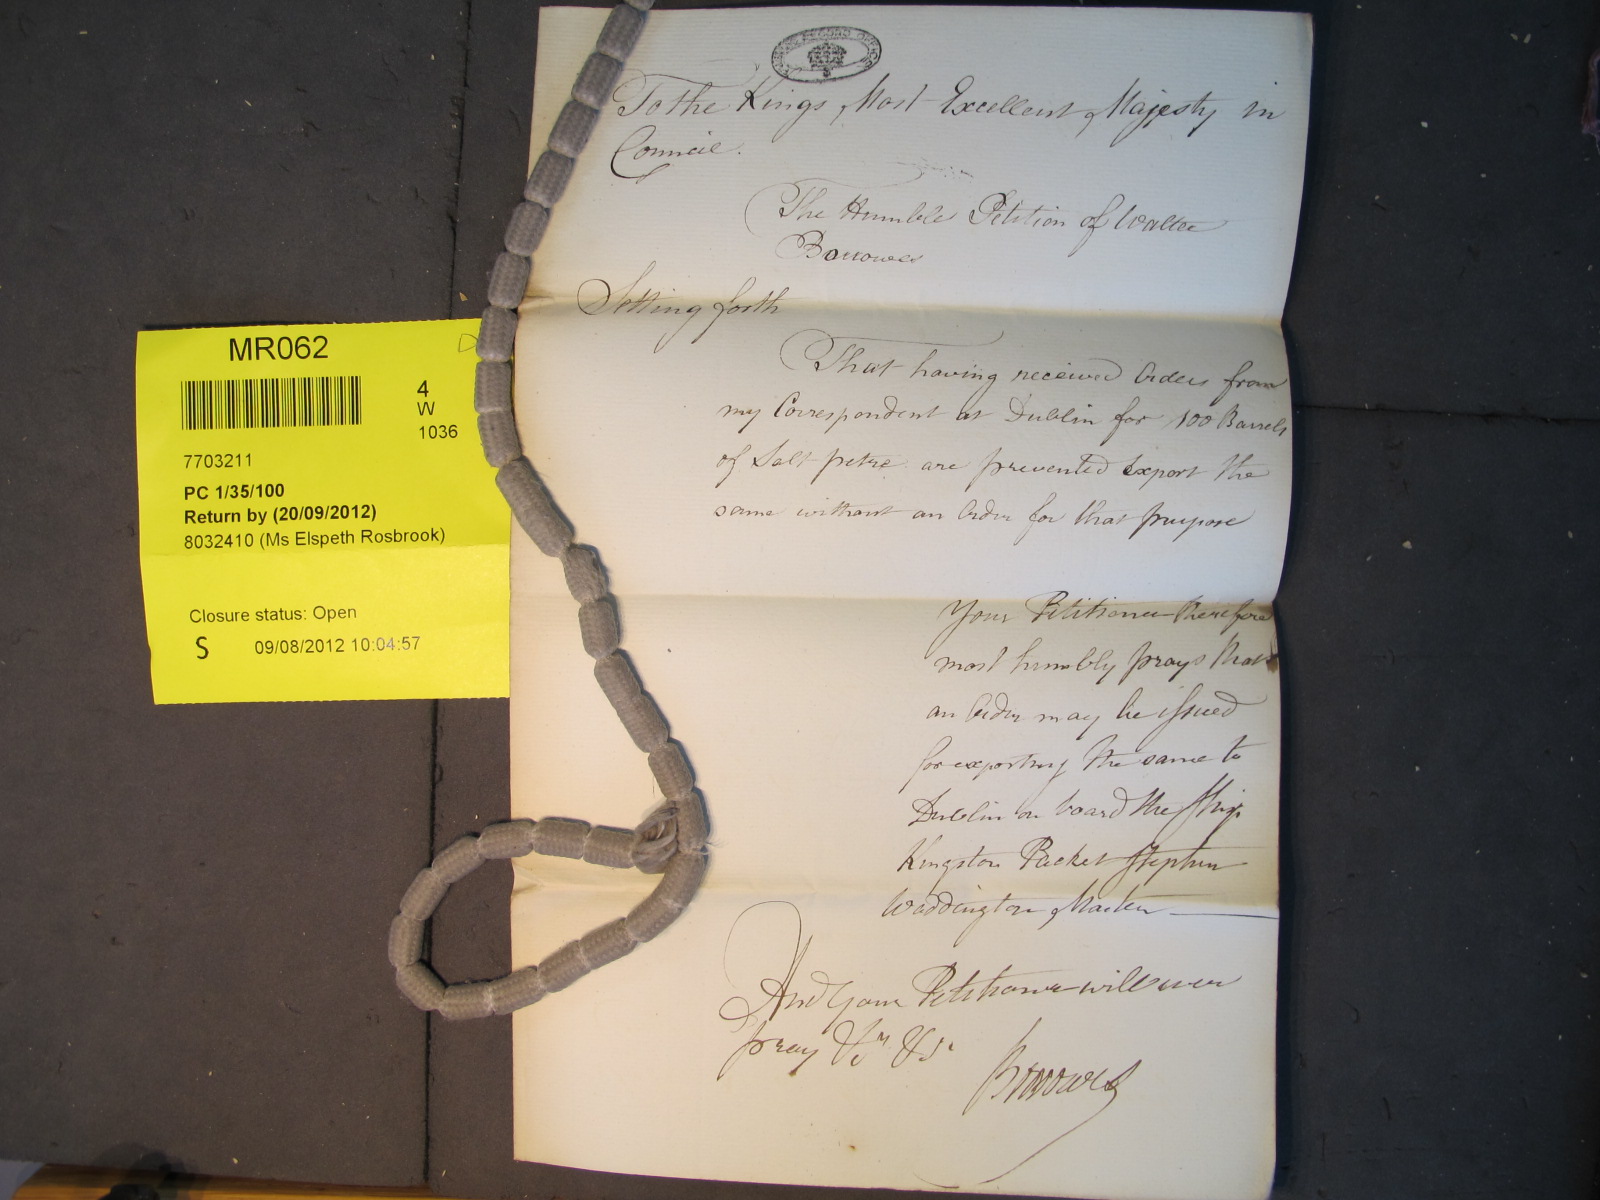 PUBLIC RECORD OFFICE
To the Kings Most Excellent Majesty in
Council.
The Humble Petition of Walter
Borrowes
Setting forth
That having received Orders from
my Correspondent at Dublin for 100 Barrels
of Salt petre are prevented Export the
same without an Order for that purpose
Your Petitioner therefore
most humbly prays that
an Order may be issued
for exporting the same to
Dublin on board the Ship
Kingston Packet Stephen
Waddington Master
And your Petitioner will ever
pray &c &c
Borrowes
MR062
4
W
1036
7703211
PC 1/35/100
Return by (20/09/2012)
8032410 (Ms Elspeth Rosbrook)
Closure status: Open
S 09/08/2012 10:04:57